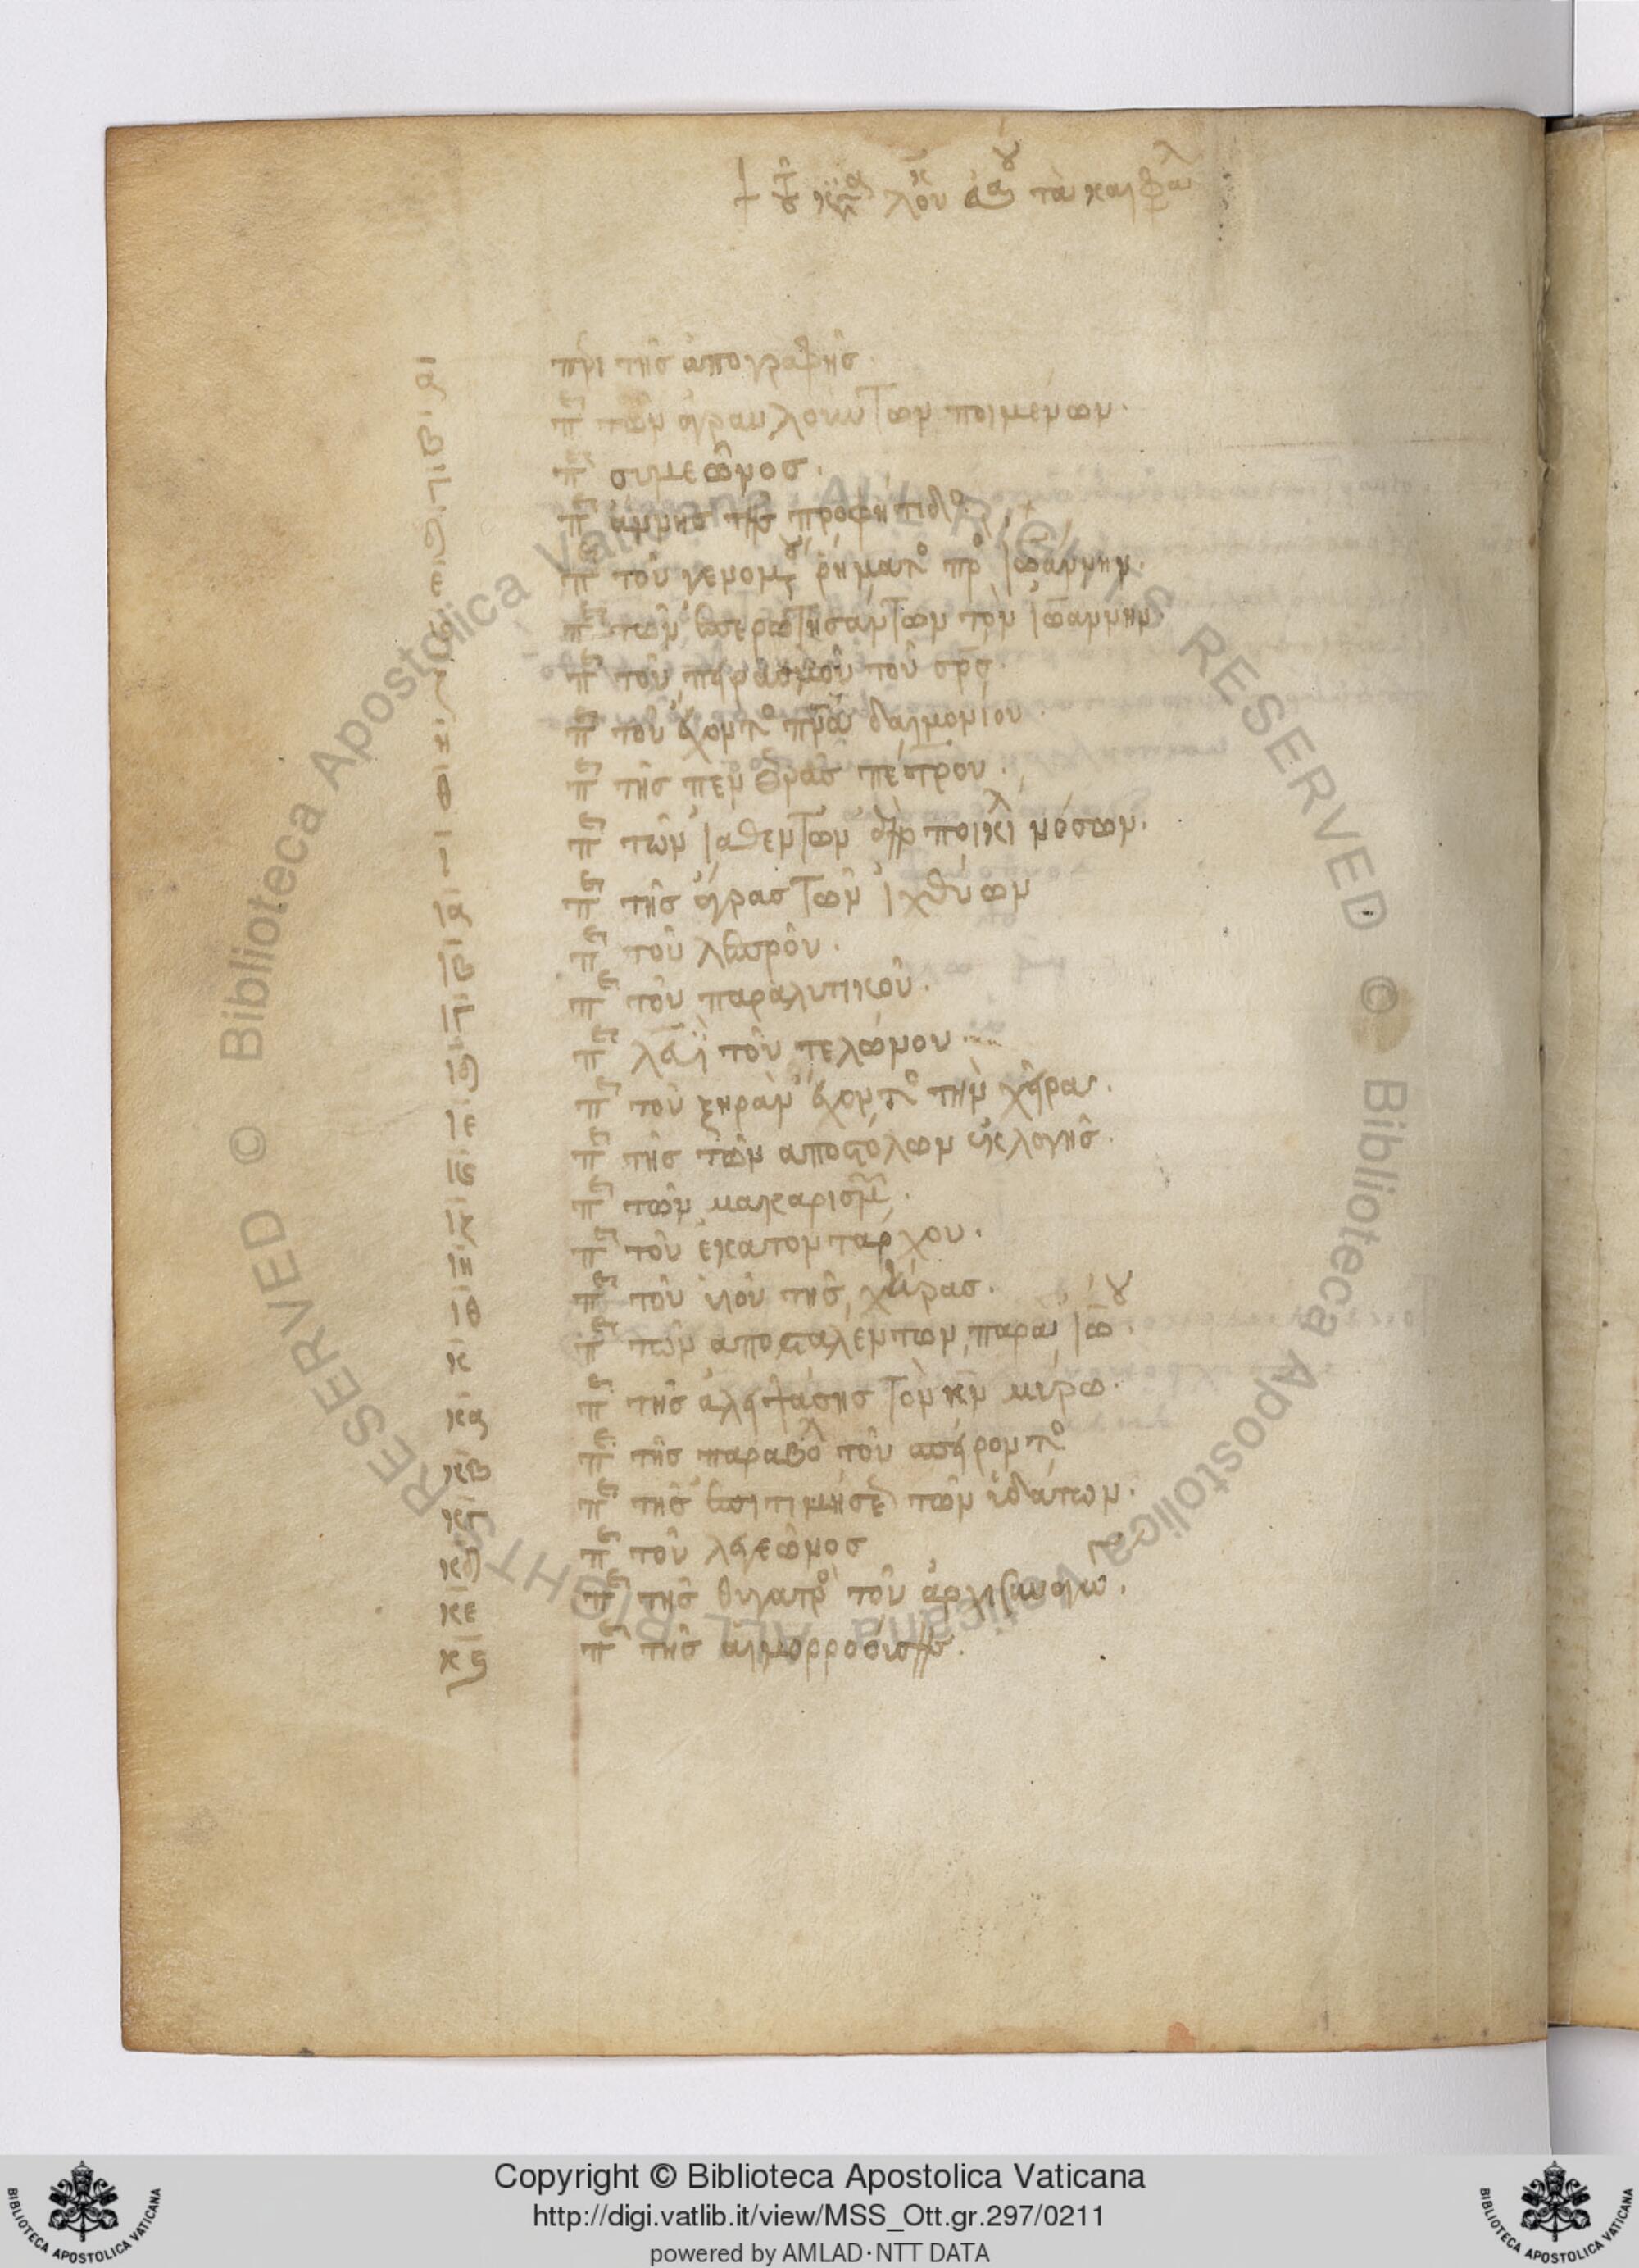 † τοῦ κατὰ λουκ ἁγίου τὰ κεφάλ
α περὶ τῆς ἀπογραφῆς.
β περ τῶν ἀγραυλούντων ποιμένων.
γ περ συμεῶνος.
δ περ ἄννης τῆς προφήτιδο
ε περ τοῦ γενομένου ῥήματο πρὸ ἰωάννην.
ϛ περ τῶν ἐπερωτησάντων τὸν ἰωάννην.
ζ περ τοῦ πειρασμοῦ τοῦ σρς.
η περ τοῦ ἔχοντο πνα δαιμονίου.
θ περ τῆς πενθερᾶς πέτρου.
ι περ τῶν ἰαθέντων ἀπὸ ποικίλ νόσων.
ια περ τῆς ἄγρας τῶν ἰχθύων
ιβ περ τοῦ λεπροῦ.
ιγ περ τοῦ παραλυτικοῦ.
ιδ περ λευῒ τοῦ τελώνου
ιε περ τοῦ ξηρὰν ἔχοντο τὴν χεῖρα.
ιϛ περ τῆς τῶν αποστόλων ἐκλογῆς.
ιζ περ τῶν μακαρισμ.
ιη περ τοῦ ἑκατοντάρχου.
ιθ περ τοῦ υἱοῦ τῆς χήρας.
κ περ τῶν αποσταλέντων παρὰ ἰωου.
κα περ τῆς ἀλειψάσης τὸν κν μύρω.
κβ περ τῆς παραβολ τοῦ σπείροντο
κγ περ τῆς ἐπιτιμήσεως τῶν ὑδάτων.
κδ περ τοῦ λεγεῶνος
κε περ τῆς θυγατρὸ τοῦ ἀρχισυναγώγ.
κϛ περ τῆς αἱμορροούσης.
Copyright © Biblioteca Apostolica Vaticana
http://digi.vatlib.it/view/MSS_Ott.gr.297/0211
powered by AMLAD·NTT DATA
BIBLIOTECA APOSTOLICA VATICANA
BIBLIOTECA APOSTOLICA VATICANA
© Biblioteca Apostolica Vaticana ALL RIGHTS RESERVED © Biblioteca Apostolica Vaticana ALL RIGHTS RESERVED